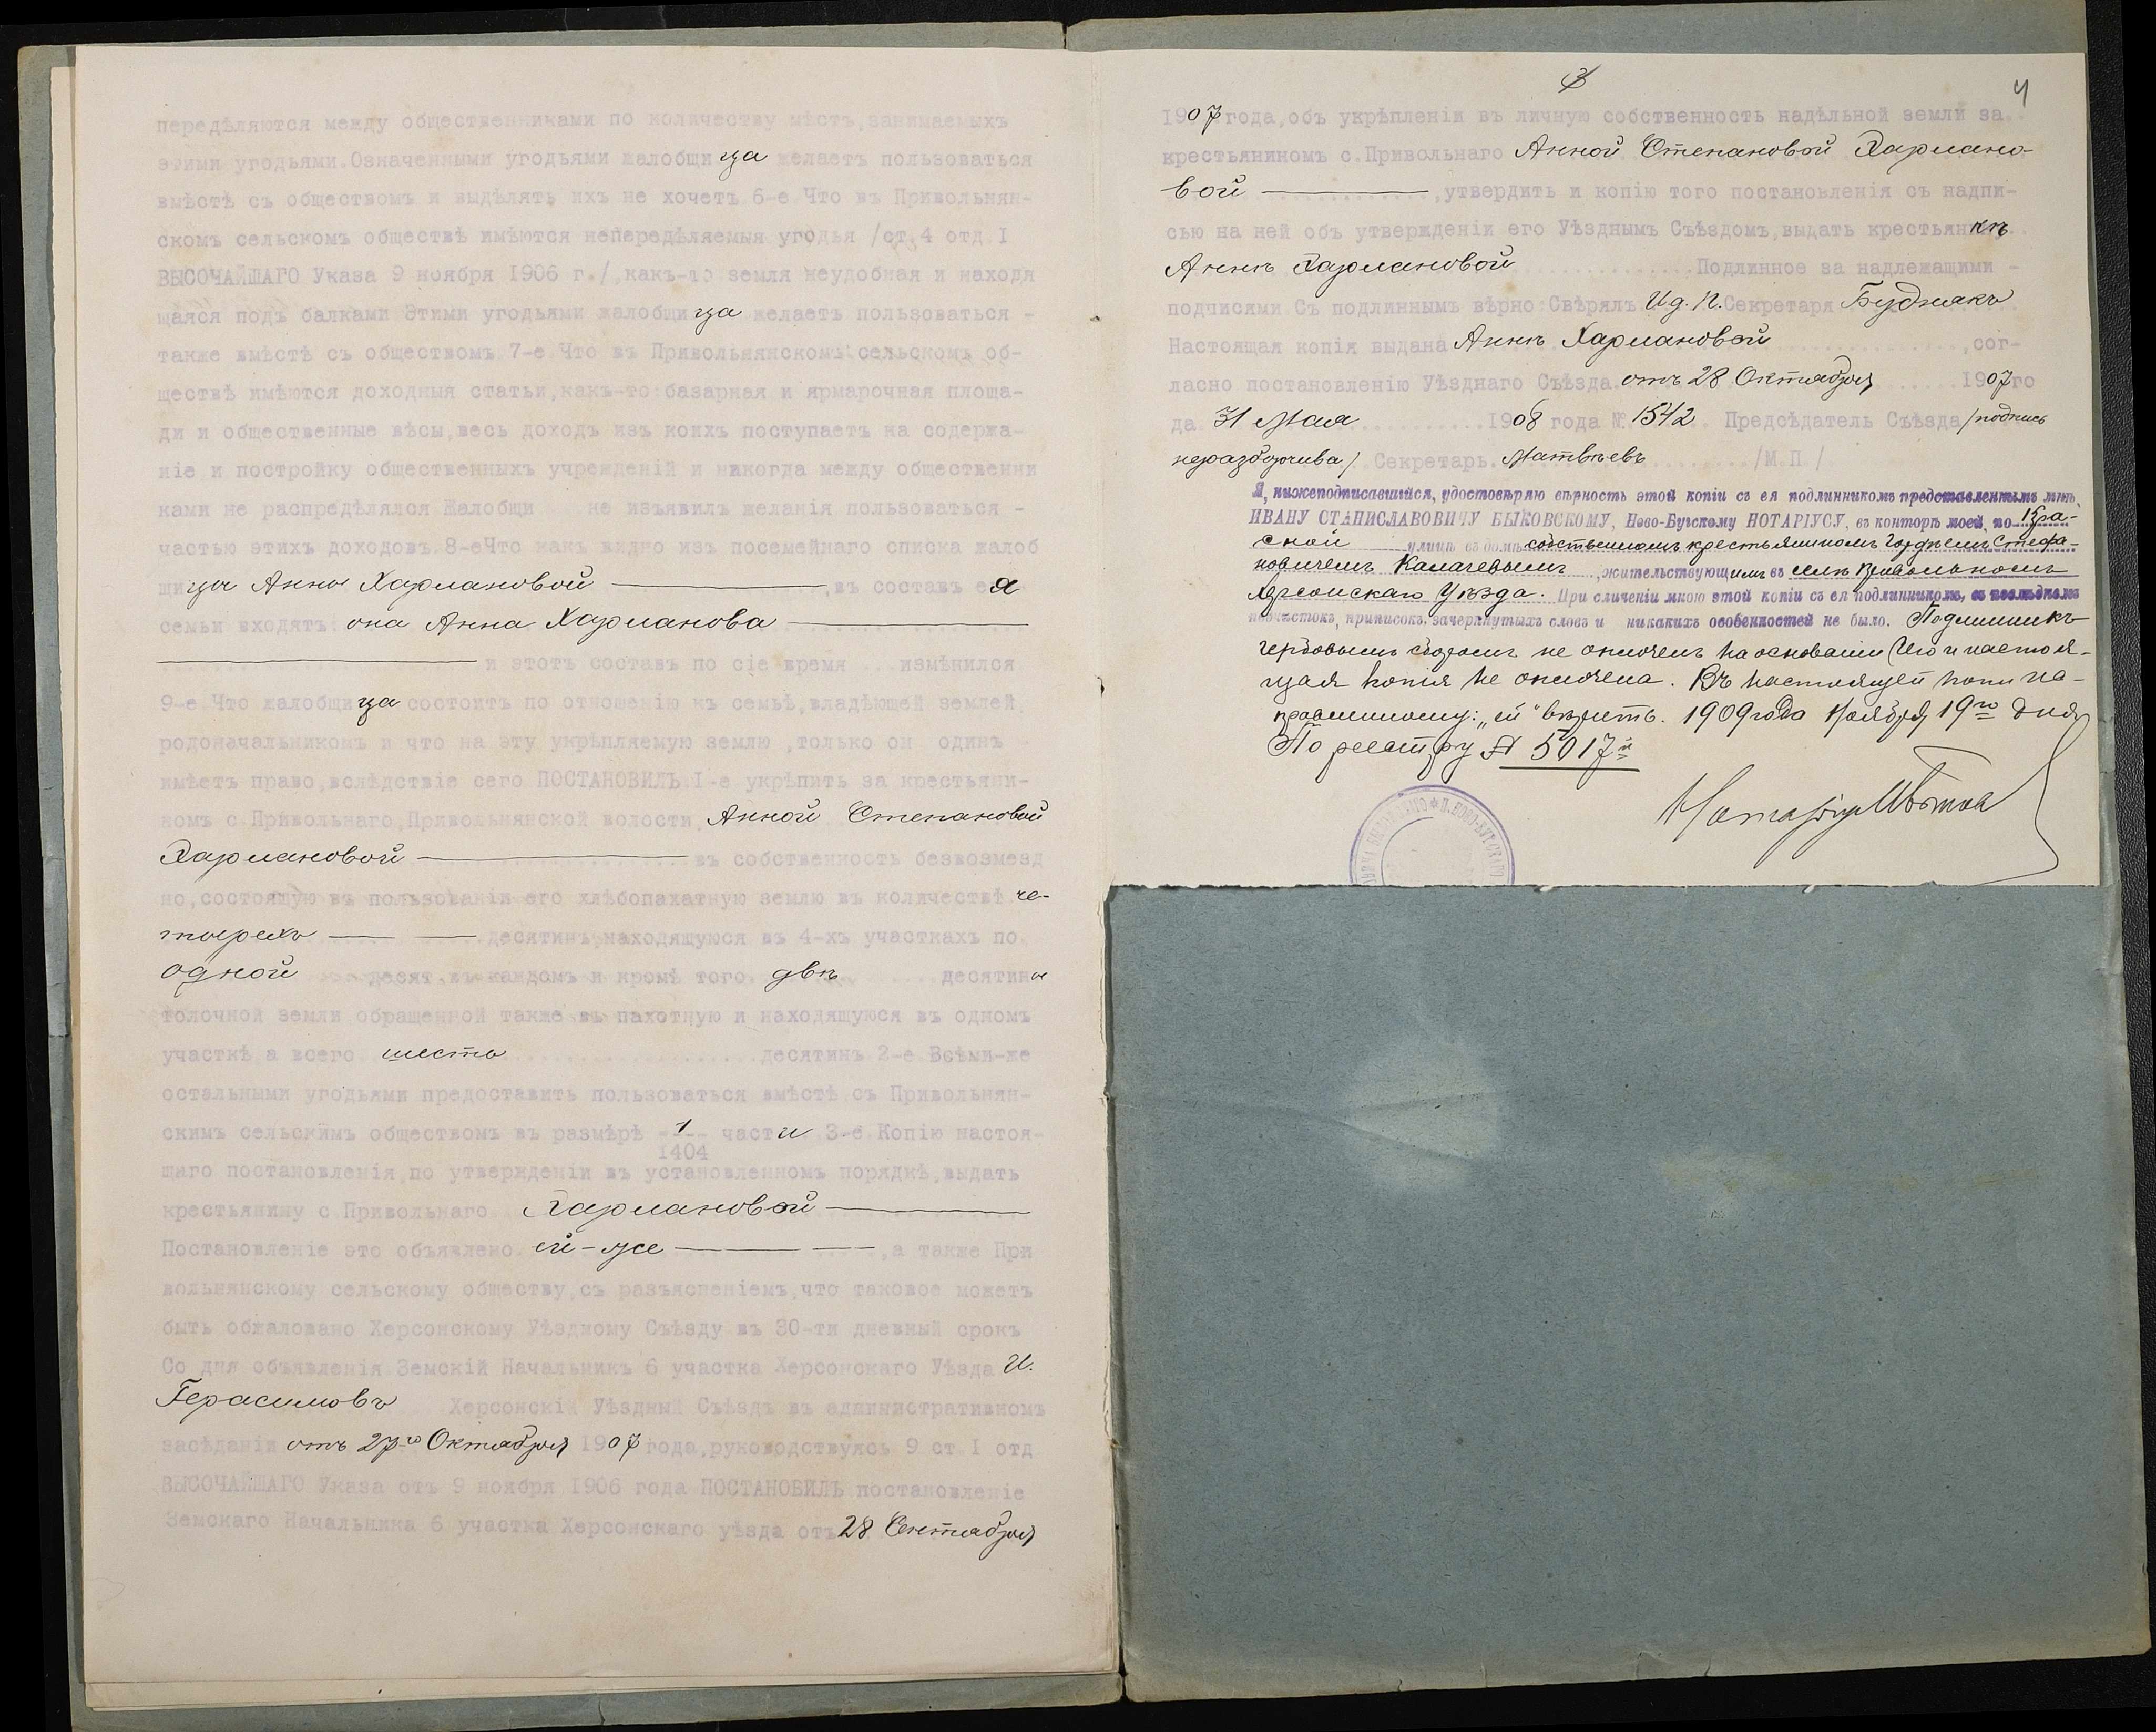 передѣляются между общественниками по количеству мѣстъ,занимаемыхъ
этими угодьями.Означенными угодьями жалобщица желаетъ пользоваться
вмѣстѣ съ обществомъ и выдѣлять ихъ не хочетъ 6-е Что въ Привольнян-
скомъ сельскомъ обществѣ имѣются непередѣляемыя угодья /ст.4 отд I
ВЫСОЧАЙШАГО Указа 9 ноября 1906 г./,какъ-то земля неудобная и находя
щаяся подъ балками Этими угодьями жалобщица желаетъ пользоваться -
также вмѣстѣ съ обществомъ 7-е Что въ Привольнянскомъ сельскомъ об-
ществѣ имѣются доходныя статьи,какъ-то:базарная и ярмарочная площа-
ди и общественные вѣсы,весь доходъ изъ коихъ поступаетъ на содержа-
ніе и постройку общественныхъ учрежденій и никогда между общественни
ками не распредѣлялся Жалобщи не изъявилъ желанія пользоваться -
частью этихъ доходовъ 8-еЧто какъ видно изъ посемейнаго списка жалоб
щицы Анны Хармановой ,въ составъ ея
семьи входятъ: она Анна Харманова
и этотъ составъ по сіе время измѣнился
9-е Что жалобщица состоитъ по отношенію къ семьѣ,владѣющей землей,
родоначальникомъ и что на эту укрѣпляемую землю ,только он одинъ
имѣетъ право,вслѣдствіе сего ПОСТАНОВИЛЪ I-е укрѣпить за крестьяни-
номъ с.Привольнаго,Привольнянской волости, Анной Степановой
Хармановой въ собственность безвозмезд
но,состоящую въ пользованіи его хлѣбопахатную землю въ количествѣ че-
тырехъ десятинъ,находящуюся въ 4-хъ участкахъ по
одной десят.въ каждомъ и кромѣ того двѣ десятины
толочной земли обращенной также въ пахотную и находящуюся въ одномъ
участкѣ а всего шесть десятинъ 2-е Всѣми-же
остальными угодьями предоставить пользоваться вмѣстѣ съ Привольнян-
скимъ сельскимъ обществомъ въ размѣрѣ 1/1404 части 3-е Копію настоя-
щаго постановленія,по утвержденіи въ установленномъ порядкѣ,выдать
крестьянину с.Привольнаго Хармановой
Постановленіе это объявлено ей-же ,а также При
вольнянскому сельскому обществу,съ разъясненіемъ,что таковое можетъ
быть обжаловано Херсонскому Уѣздному Съѣзду въ 30-ти дневный срокъ
Со дня объявленія Земскій Начальникъ 6 участка Херсонскаго Уѣзда И.
Герасимовъ Херсонскій Уѣздный Съѣздъ въ административномъ
засѣданіи отъ 27го Октября 1907 года,руководствуясь 9 ст I отд
ВЫСОЧАЙШАГО Указа отъ 9 ноября 1906 года ПОСТАНОВИЛЪ постановленіе
Земскаго Начальника 6 участка Херсонскаго уѣзда отъ 28 Сентября
3
4
1907 года,объ укрѣпленіи въ личную собственность надѣльной земли за
крестьяниномъ с.Привольнаго Анной Степановой Хармано-
вой ,утвердить и копію того постановленія съ надпи-
сью на ней объ утвержденіи его Уѣзднымъ Съѣздомъ,выдать крестьянкѣ
Аннѣ Хармановой Подлинное за надлежащими -
подписями Съ подлиннымъ вѣрно:Свѣрялъ И.д.п.Секретаря Буднякъ
Настоящая копія выдана Аннѣ Хармановой ,сог-
ласно постановленію Уѣзднаго Съѣзда отъ 28 Октября 1907го
да 31 Мая 1908 года № 1542 Предсѣдатель Съѣзда /подпись
неразборчива/ Секретарь Матвѣевъ /М.П./
Я, нижеподписавшійся, удостовѣряю вѣрность этой копіи съ ея подлинникомъ представленнымъ мнѣ,
ИВАНУ СТАНИСЛАВОВИЧУ БЫКОВСКОМУ, Ново-Бугскому НОТАРІУСУ, въ конторѣ моей, по Кра-
сной улицѣ въ домѣ собственномъ крестьяниномъ Гордѣемъ Стефа-
новичемъ Калачевымъ, жительствующимъ въ селѣ Привольномъ
Херсонскаго Уѣзда. При сличеніи мною этой копіи съ ея подлинникомъ, въ послѣднемъ
подчистокъ, приписокъ, зачеркнутыхъ словъ и никакихъ особенностей не было. Подлинникъ
гербовымъ сборомъ не оплоченъ на основаніи и настоя-
щая копія не оплочена. Въ настоящей копіи на-
правленному: „ей" вѣрить. 1909 года Ноября 19го дня
По реестру № 5017й
Нотаріусъ